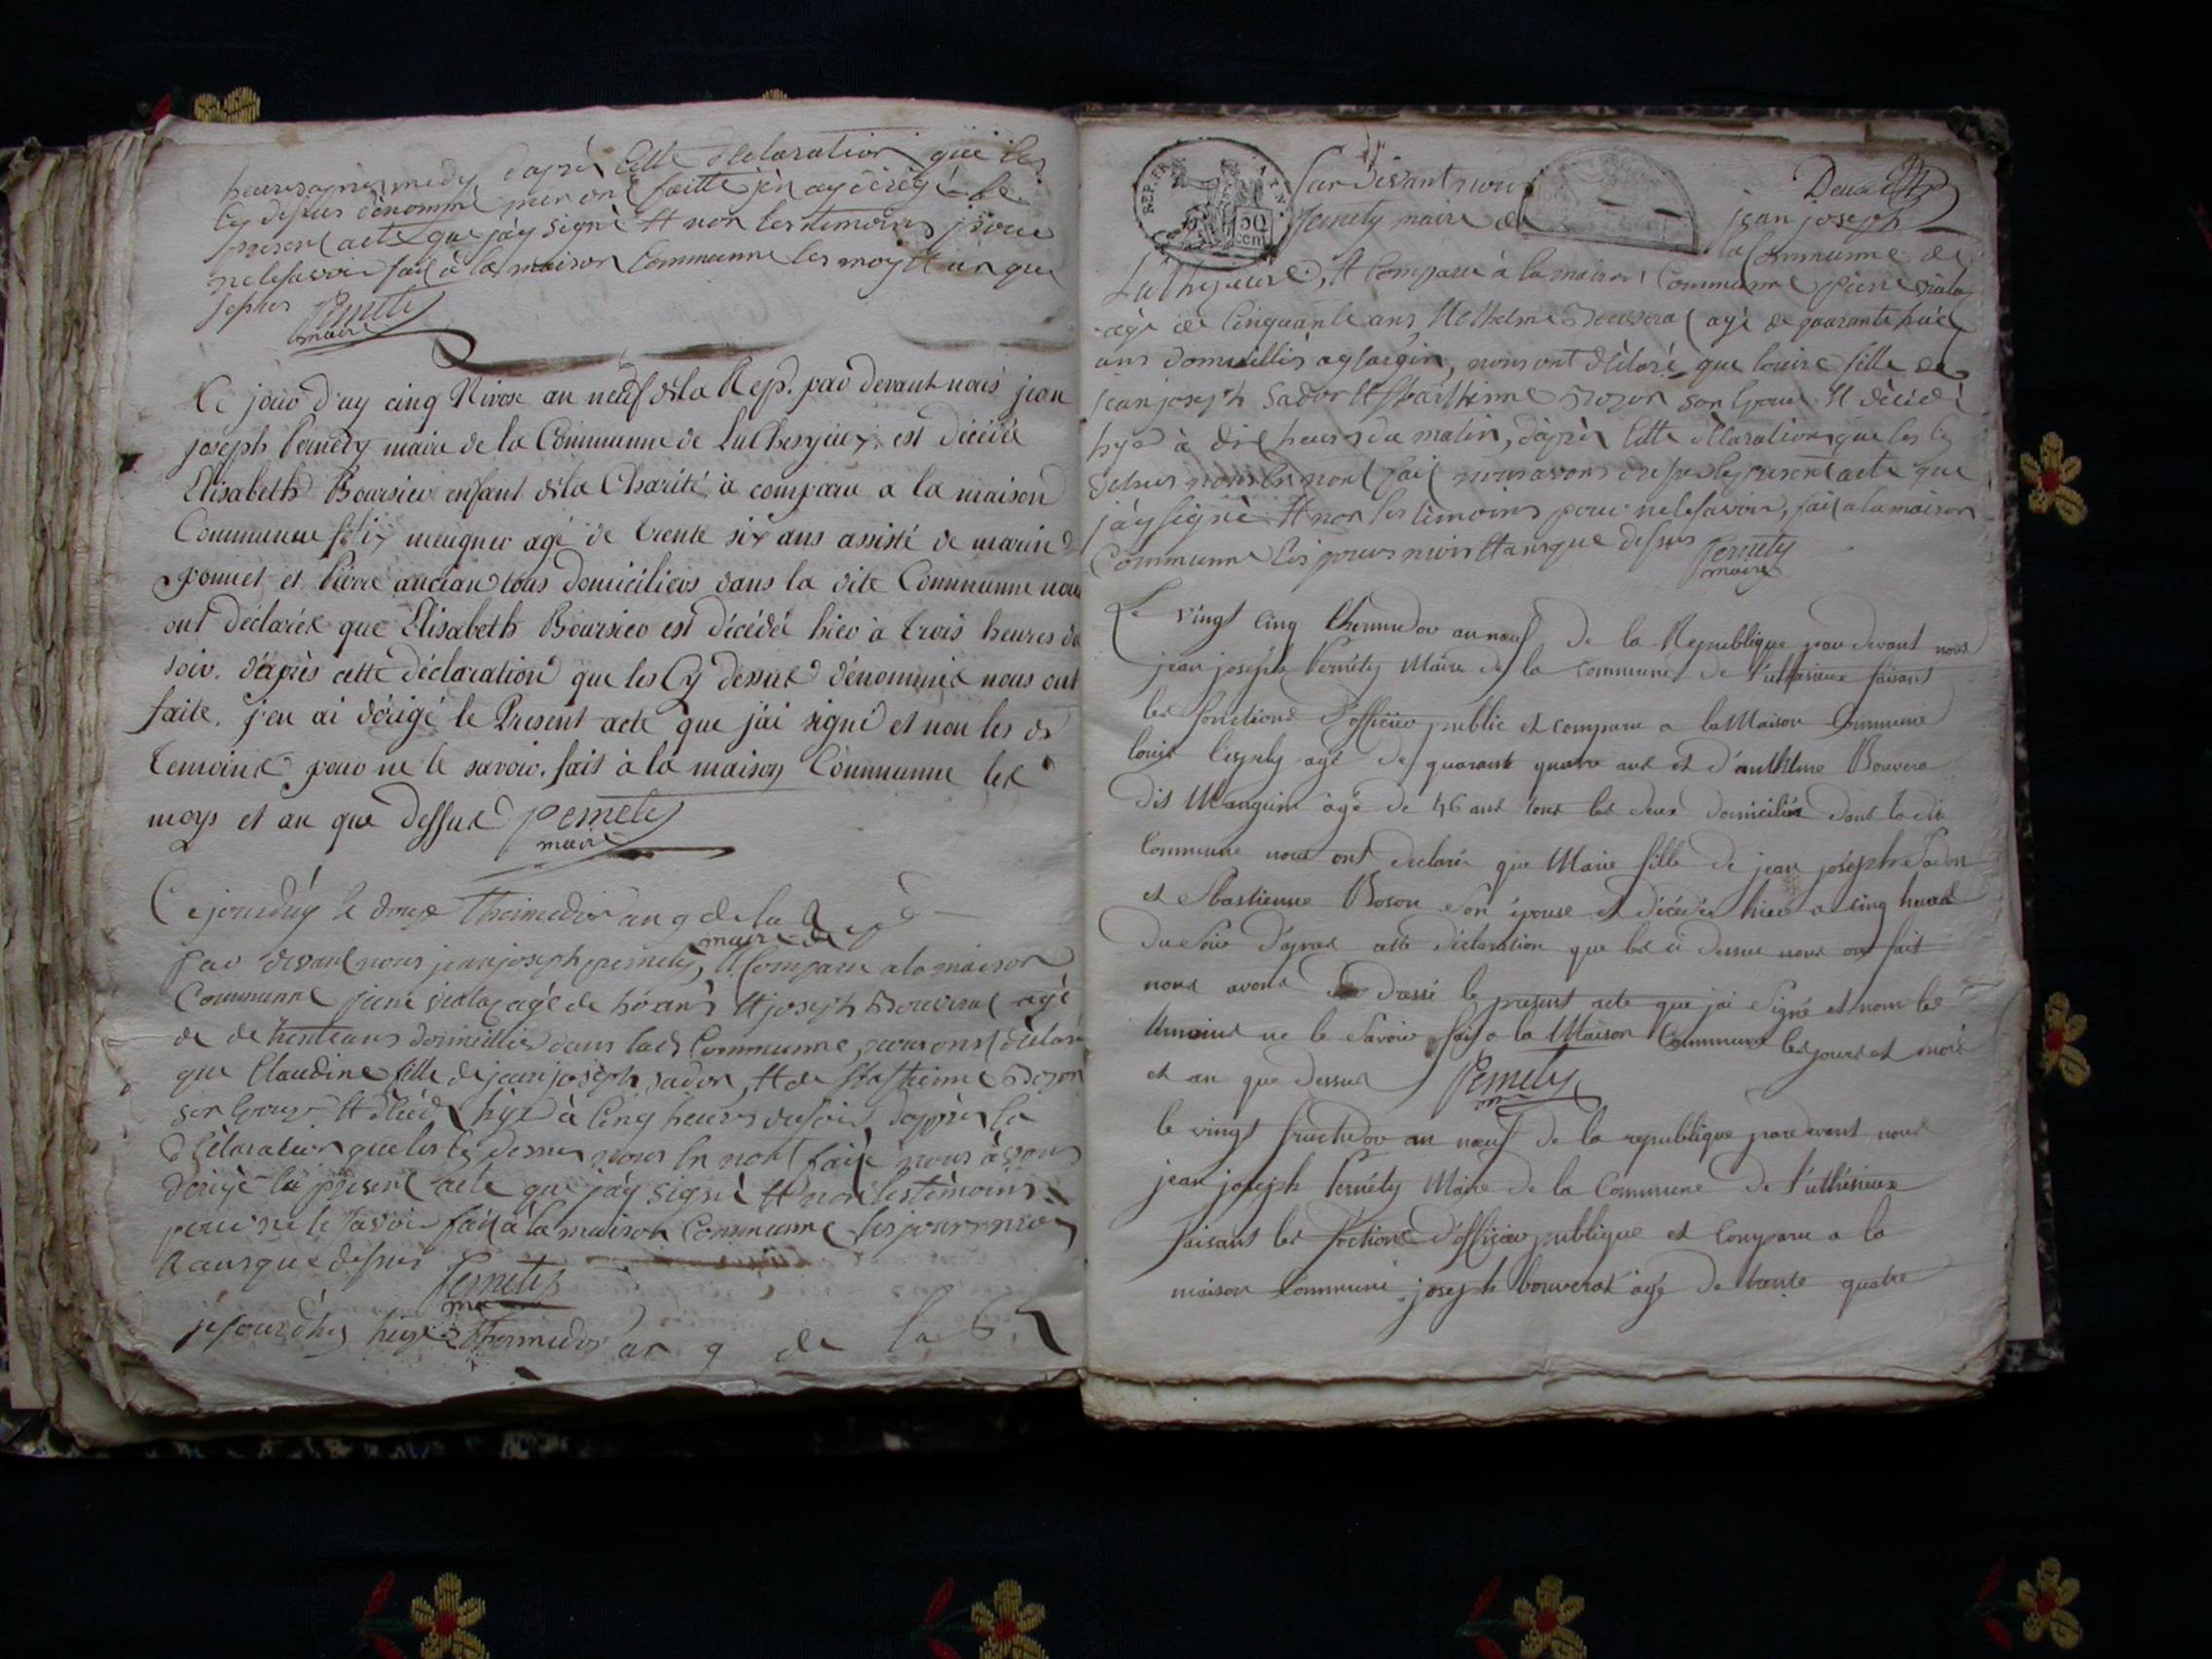 heures apres medy d'apres cette declaration que les
cy dessus dénommé mon ont faitte j'en ay dérigé le
present acte que j'ay signé et non les temoins pour
ne le savoir fait à la maison Communne les moy et an que
dessus Pernety
maire
Ce jour d'uy cinq Nivose an neuf de la Rep. par devant nous jean
joseph Pernety maire de la Communne de Lutheysieux est décédée
Elisabeth Boursier enfant de la Charité, à comparu a la maison
Communne felix meugner agé de trente six ans assisté de marin
et Pierre ancian tous domiciliers dans la dite Communne nous
ont déclarés que Elisabeth Boursier est décédée hier à trois heures du
soir. d'après cette déclaration que les Cy dessus dénommés nous ont
faite. j'en ai dérigé le Present acte que j'ai signé et non les ds
temoins pour ne le savoir. fait à la maison Communne les
moys et an que dessus Pernety
maire
Ce jourd'uy le douze Thermidor an 9 de la Rep
maire de
Par devant nous jean joseph pernety, et Comparu a la maison
Communne agé de 50 ans et joseph Bouverat agé
de de trente ans domicillié dans lad Communne, nous ont déclaré
que Claudine fille de jean joseph sadon, et de Sbastienne Bozon
son epouse et décédé hyer à cinq heures du soir, d'apres la
déclaration que les cy dessus nous en n'ont faitte nous avons
dérigé le présent acte que j'ay signé et non les témoins
pour ne le savoir fait à la maison Communne les jour mois
et an que dessus
Pernety
maire
jejourd'hy Thermidor an 9 de la
REP. FRA.
50
cent
Par devant nous
jean joseph
Pernety maire de la Communne de
Lutheysieux, et Comparu à la maison Communne pierre
agé de Cinquante ans et Anthelme Bouverat agé de quarante
ans domicilliés, nous ont déclaré que louise fille de
jean joseph Sadon et Sbastienne Bozon son epouse et décédé
hyer à dix heures du matin, d'après cette déclaration que les cy
dessus nous en n'ont fait nous avons dressé le present acte que
j'ay signé et non les témoins pour ne le savoir, fait a la maison
Communne les jours mois et an que dessus Pernety
maire
Le vingt cinq thermidor an neuf de la Republique par devant nous
jean joseph Pernéty Maire de la commune de Luthésieux faisant
les fonctions d'officier public et comparu a la Maison Commune
louis agé de quarant quatre ans et d'anthelme Bouvera
dit Mangim agé de 46 ans tous les deux domiciliés dans ladite
Commune nous ont declarés que Marie fille de jean joseph Sadon
et Sbastienne Boson son épouse et décédée hier a cinq heures
du soir d'apres cette déclaration que les ci dessus nous ont fait
nous avons dressé le present acte que jai signé et nom les
temoins ne le savoir fait a la Maison Commune les jours et mois
et an que dessus Pernety
le vingt fructidor an neuf de la republique pardevant nous
jean joseph Pernéty Maire de la Commune de Luthésieux
faisant les foctions d'officier publique et Comparu a la
maison Commune joseph bouverat agé de trente quatre